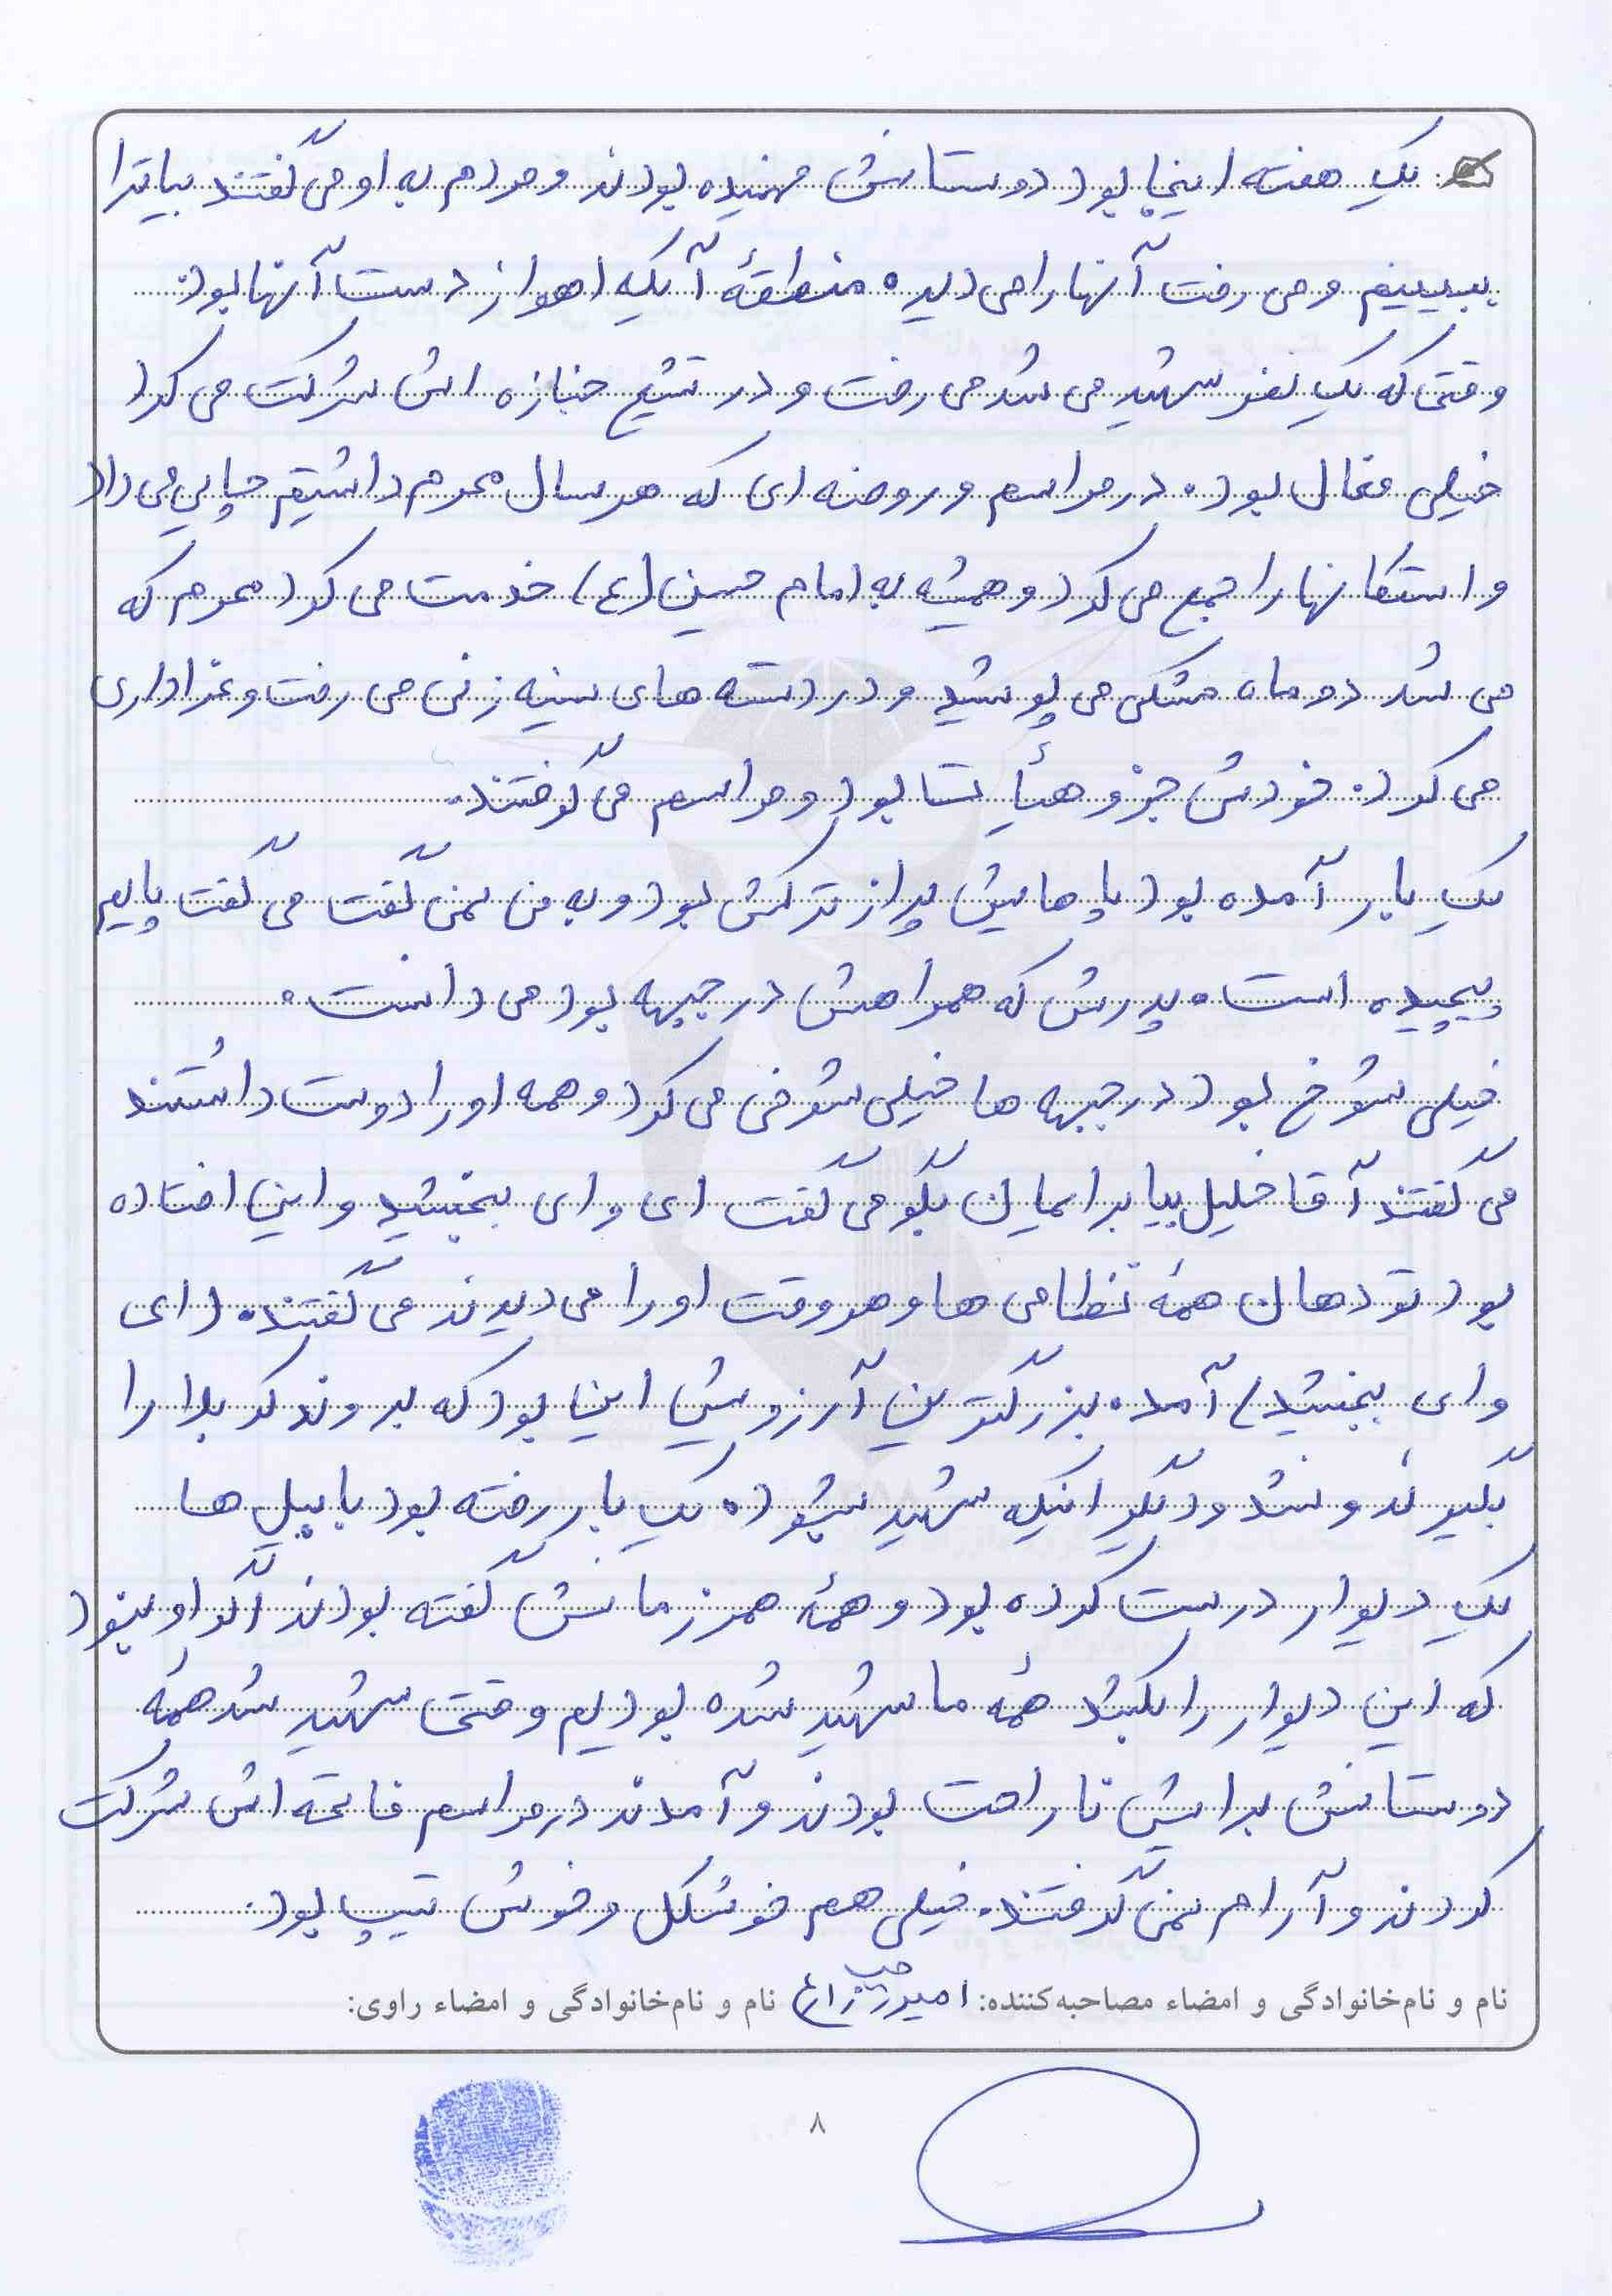 یک هفته اینجا بود دوستانش فهمیده بودند و مردم به او می گفتند بیا ترا
ببینیم و می رفت آنها را می دید. منطقهٔ آبگیه اهواز دست آنها بود.
وقتی که یک نفر شهید می شد می رفت و در تشیع جنازه اش شرکت می کرد
خیلی فعال بود. در مراسم و روضه ای که هر سال محرم داشتیم چایی می داد
و استکانها را جمع می کرد و همیشه به امام حسین (ع) خدمت می کرد محرم که
می شد دو ماه مشکی می پوشید و در دسته های سینه زنی می رفت و عزاداری
می کرد. خودش جزو هیأت بود و مراسم می گرفتند.
یک بار آمده بود پاهایش پر از ترکش بود و به من نمی گفت می گفت پایم
پیچیده است. پدرش که همراهش در جبهه بود می دانست.
خیلی شوخ بود در جبهه ها خیلی شوخی می کرد و همه او را دوست داشتند
می گفتند آقا خلیل بیا برایمان بگو می گفت ای وای ببخشید و این افتاده
بود تو دهان همهٔ نظامی ها و هر وقت او را می دیدند می گفتند. (ای
وای ببخشید) آمد. بزرگترین آرزویش این بود که بروند کربلا را
بگیرند و نشد و دیگر اینکه شهید بشود. یک بار رفته بود با بیل ها
یک دیوار درست کرده بود و همهٔ همرزمانش گفته بودند اگر او نبود
که این دیوار را بکشد همهٔ ما شهید شده بودیم وقتی شهید شد همهٔ
دوستانش برایش ناراحت بودند و آمدند در مراسم فاتحه اش شرکت
کردند و آرام نمی گرفتند. خیلی هم خوشگل و خوش تیپ بود.
نام و نام‌خانوادگی و امضاء مصاحبه‌کننده: نام و نام‌خانوادگی و امضاء راوی:
۸